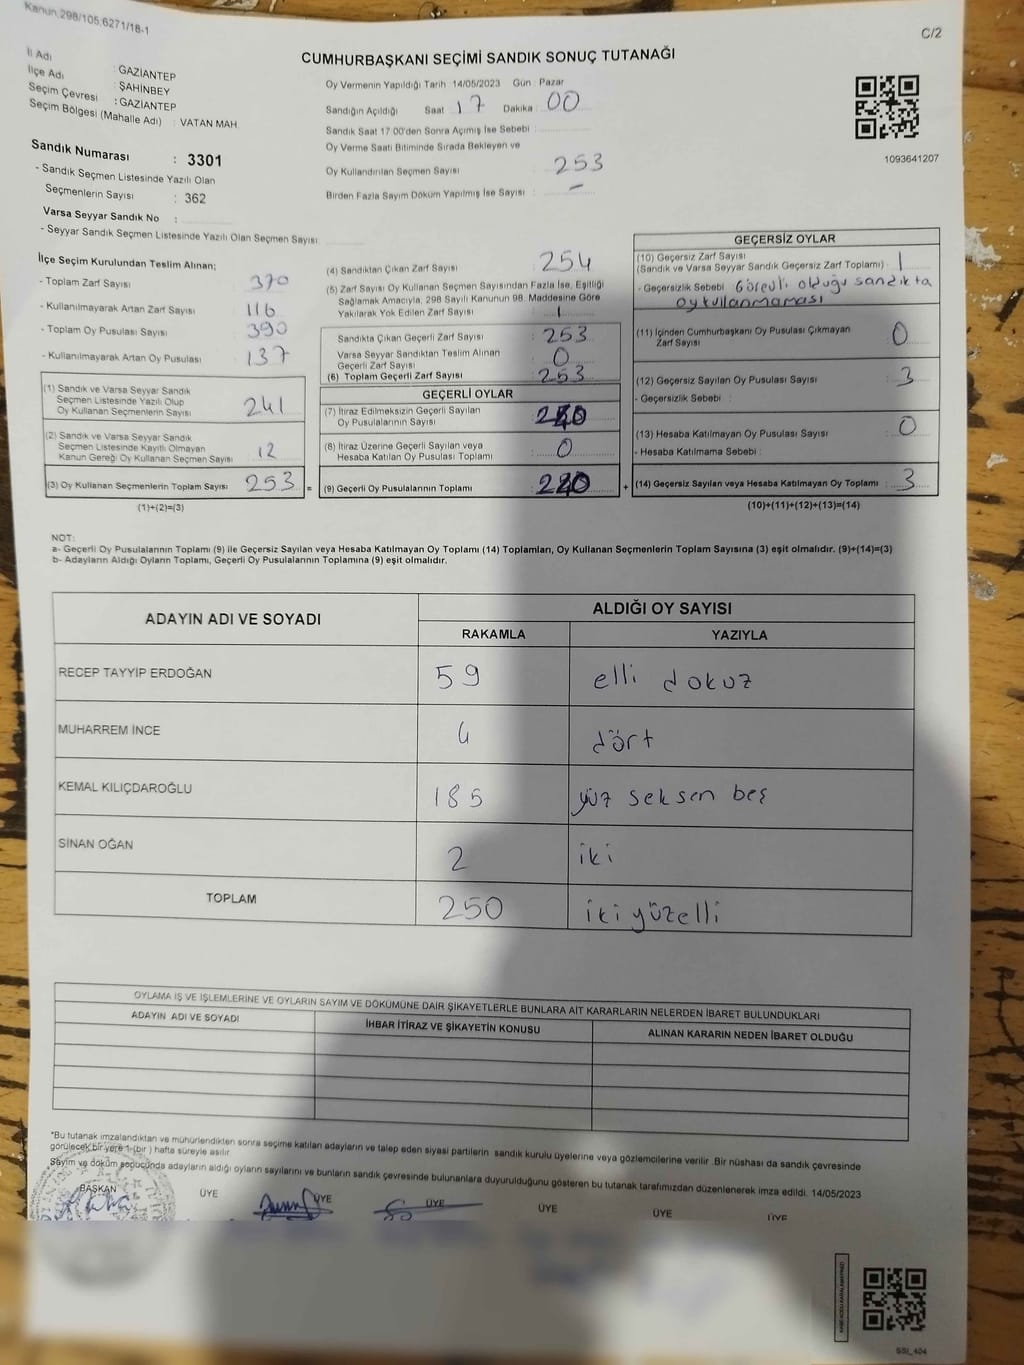 Kanun.298/105,6271/18-1
C/2
CUMHURBAŞKANI SEÇİMİ SANDIK SONUÇ TUTANAĞI
İl Adı : GAZİANTEP
İlçe Adı : ŞAHİNBEY
Seçim Çevresi : GAZİANTEP
Seçim Bölgesi (Mahalle Adı) : VATAN MAH.
Sandık Numarası : 3301
- Sandık Seçmen Listesinde Yazılı Olan
Seçmenlerin Sayısı : 362
Varsa Seyyar Sandık No :
- Seyyar Sandık Seçmen Listesinde Yazılı Olan Seçmen Sayısı:
Oy Vermenin Yapıldığı Tarih 14/05/2023 Gün : Pazar
Sandığın Açıldığı Saat 17 Dakika 00
Sandık Saat 17:00'den Sonra Açımış İse Sebebi :
Oy Verme Saati Bitiminde Sırada Bekleyen ve
Oy Kullandırılan Seçmen Sayısı : 253
Birden Fazla Sayım Döküm Yapılmış İse Sayısı : -
1093641207
İlçe Seçim Kurulundan Teslim Alınan;
- Toplam Zarf Sayısı : 370
- Kullanılmayarak Artan Zarf Sayısı : 116
- Toplam Oy Pusulası Sayısı : 390
- Kullanılmayarak Artan Oy Pusulası : 137
(1) Sandık ve Varsa Seyyar Sandık
Seçmen Listesinde Yazılı Olup
Oy Kullanan Seçmenlerin Sayısı : 241
(2) Sandık ve Varsa Seyyar Sandık
Seçmen Listesinde Kayıtlı Olmayan
Kanun Gereği Oy Kullanan Seçmen Sayısı : 12
(3) Oy Kullanan Seçmenlerin Toplam Sayısı : 253 =
(1)+(2)=(3)
(4) Sandıktan Çıkan Zarf Sayısı : 254
(5) Zarf Sayısı Oy Kullanan Seçmen Sayısından Fazla İse, Eşitliği
Sağlamak Amacıyla, 298 Sayılı Kanunun 98. Maddesine Göre
Yakılarak Yok Edilen Zarf Sayısı : 1
Sandıkta Çıkan Geçerli Zarf Sayısı : 253
Varsa Seyyar Sandıktan Teslim Alınan
Geçerli Zarf Sayısı : 0
(6) Toplam Geçerli Zarf Sayısı : 253
GEÇERLİ OYLAR
(7) İtiraz Edilmeksizin Geçerli Sayılan
Oy Pusulalarının Sayısı :
(8) İtiraz Üzerine Geçerli Sayılan veya
Hesaba Katılan Oy Pusulası Toplamı : 0
(9) Geçerli Oy Pusulalarının Toplamı : +
GEÇERSİZ OYLAR
(10) Geçersiz Zarf Sayısı
(Sandık ve Varsa Seyyar Sandık Geçersiz Zarf Toplamı) : 1
- Geçersizlik Sebebi Görevli olduğu sandıkta
oy kullanmaması
(11) İçinden Cumhurbaşkanı Oy Pusulası Çıkmayan
Zarf Sayısı : 0
(12) Geçersiz Sayılan Oy Pusulası Sayısı : 3
- Geçersizlik Sebebi :
(13) Hesaba Katılmayan Oy Pusulası Sayısı : 0
- Hesaba Katılmama Sebebi :
(14) Geçersiz Sayılan veya Hesaba Katılmayan Oy Toplamı : 3
(10)+(11)+(12)+(13)=(14)
NOT:
a- Geçerli Oy Pusulalarının Toplamı (9) ile Geçersiz Sayılan veya Hesaba Katılmayan Oy Toplamı (14) Toplamları, Oy Kullanan Seçmenlerin Toplam Sayısına (3) eşit olmalıdır. (9)+(14)=(3)
b- Adayların Aldığı Oyların Toplamı, Geçerli Oy Pusulalarının Toplamına (9) eşit olmalıdır.
ADAYIN ADI VE SOYADI ALDIĞI OY SAYISI
RAKAMLA YAZIYLA
RECEP TAYYİP ERDOĞAN 59 elli dokuz
MUHARREM İNCE 4 dört
KEMAL KILIÇDAROĞLU 185 yüz seksen beş
SİNAN OĞAN 2 iki
TOPLAM 250 iki yüzelli
OYLAMA İŞ VE İŞLEMLERİNE VE OYLARIN SAYIM VE DÖKÜMÜNE DAİR ŞİKAYETLERLE BUNLARA AİT KARARLARIN NELERDEN İBARET BULUNDUKLARI
ADAYIN ADI VE SOYADI İHBAR İTİRAZ VE ŞİKAYETİN KONUSU ALINAN KARARIN NEDEN İBARET OLDUĞU
*Bu tutanak imzalandıktan ve mühürlendikten sonra seçime katılan adayların ve talep eden siyasi partilerin sandık kurulu üyelerine veya gözlemcilerine verilir .Bir nüshası da sandık çevresinde
görülecek bir yere 1 (bir ) hafta süreyle asılır
Sayım ve döküm sonucunda adayların aldığı oyların sayılarını ve bunların sandık çevresinde bulunanlara duyurulduğunu gösteren bu tutanak tarafımızdan düzenlenerek imza edildi. 14/05/2023
BAŞKAN ÜYE ÜYE ÜYE ÜYE ÜYE ÜYE
SSI_404